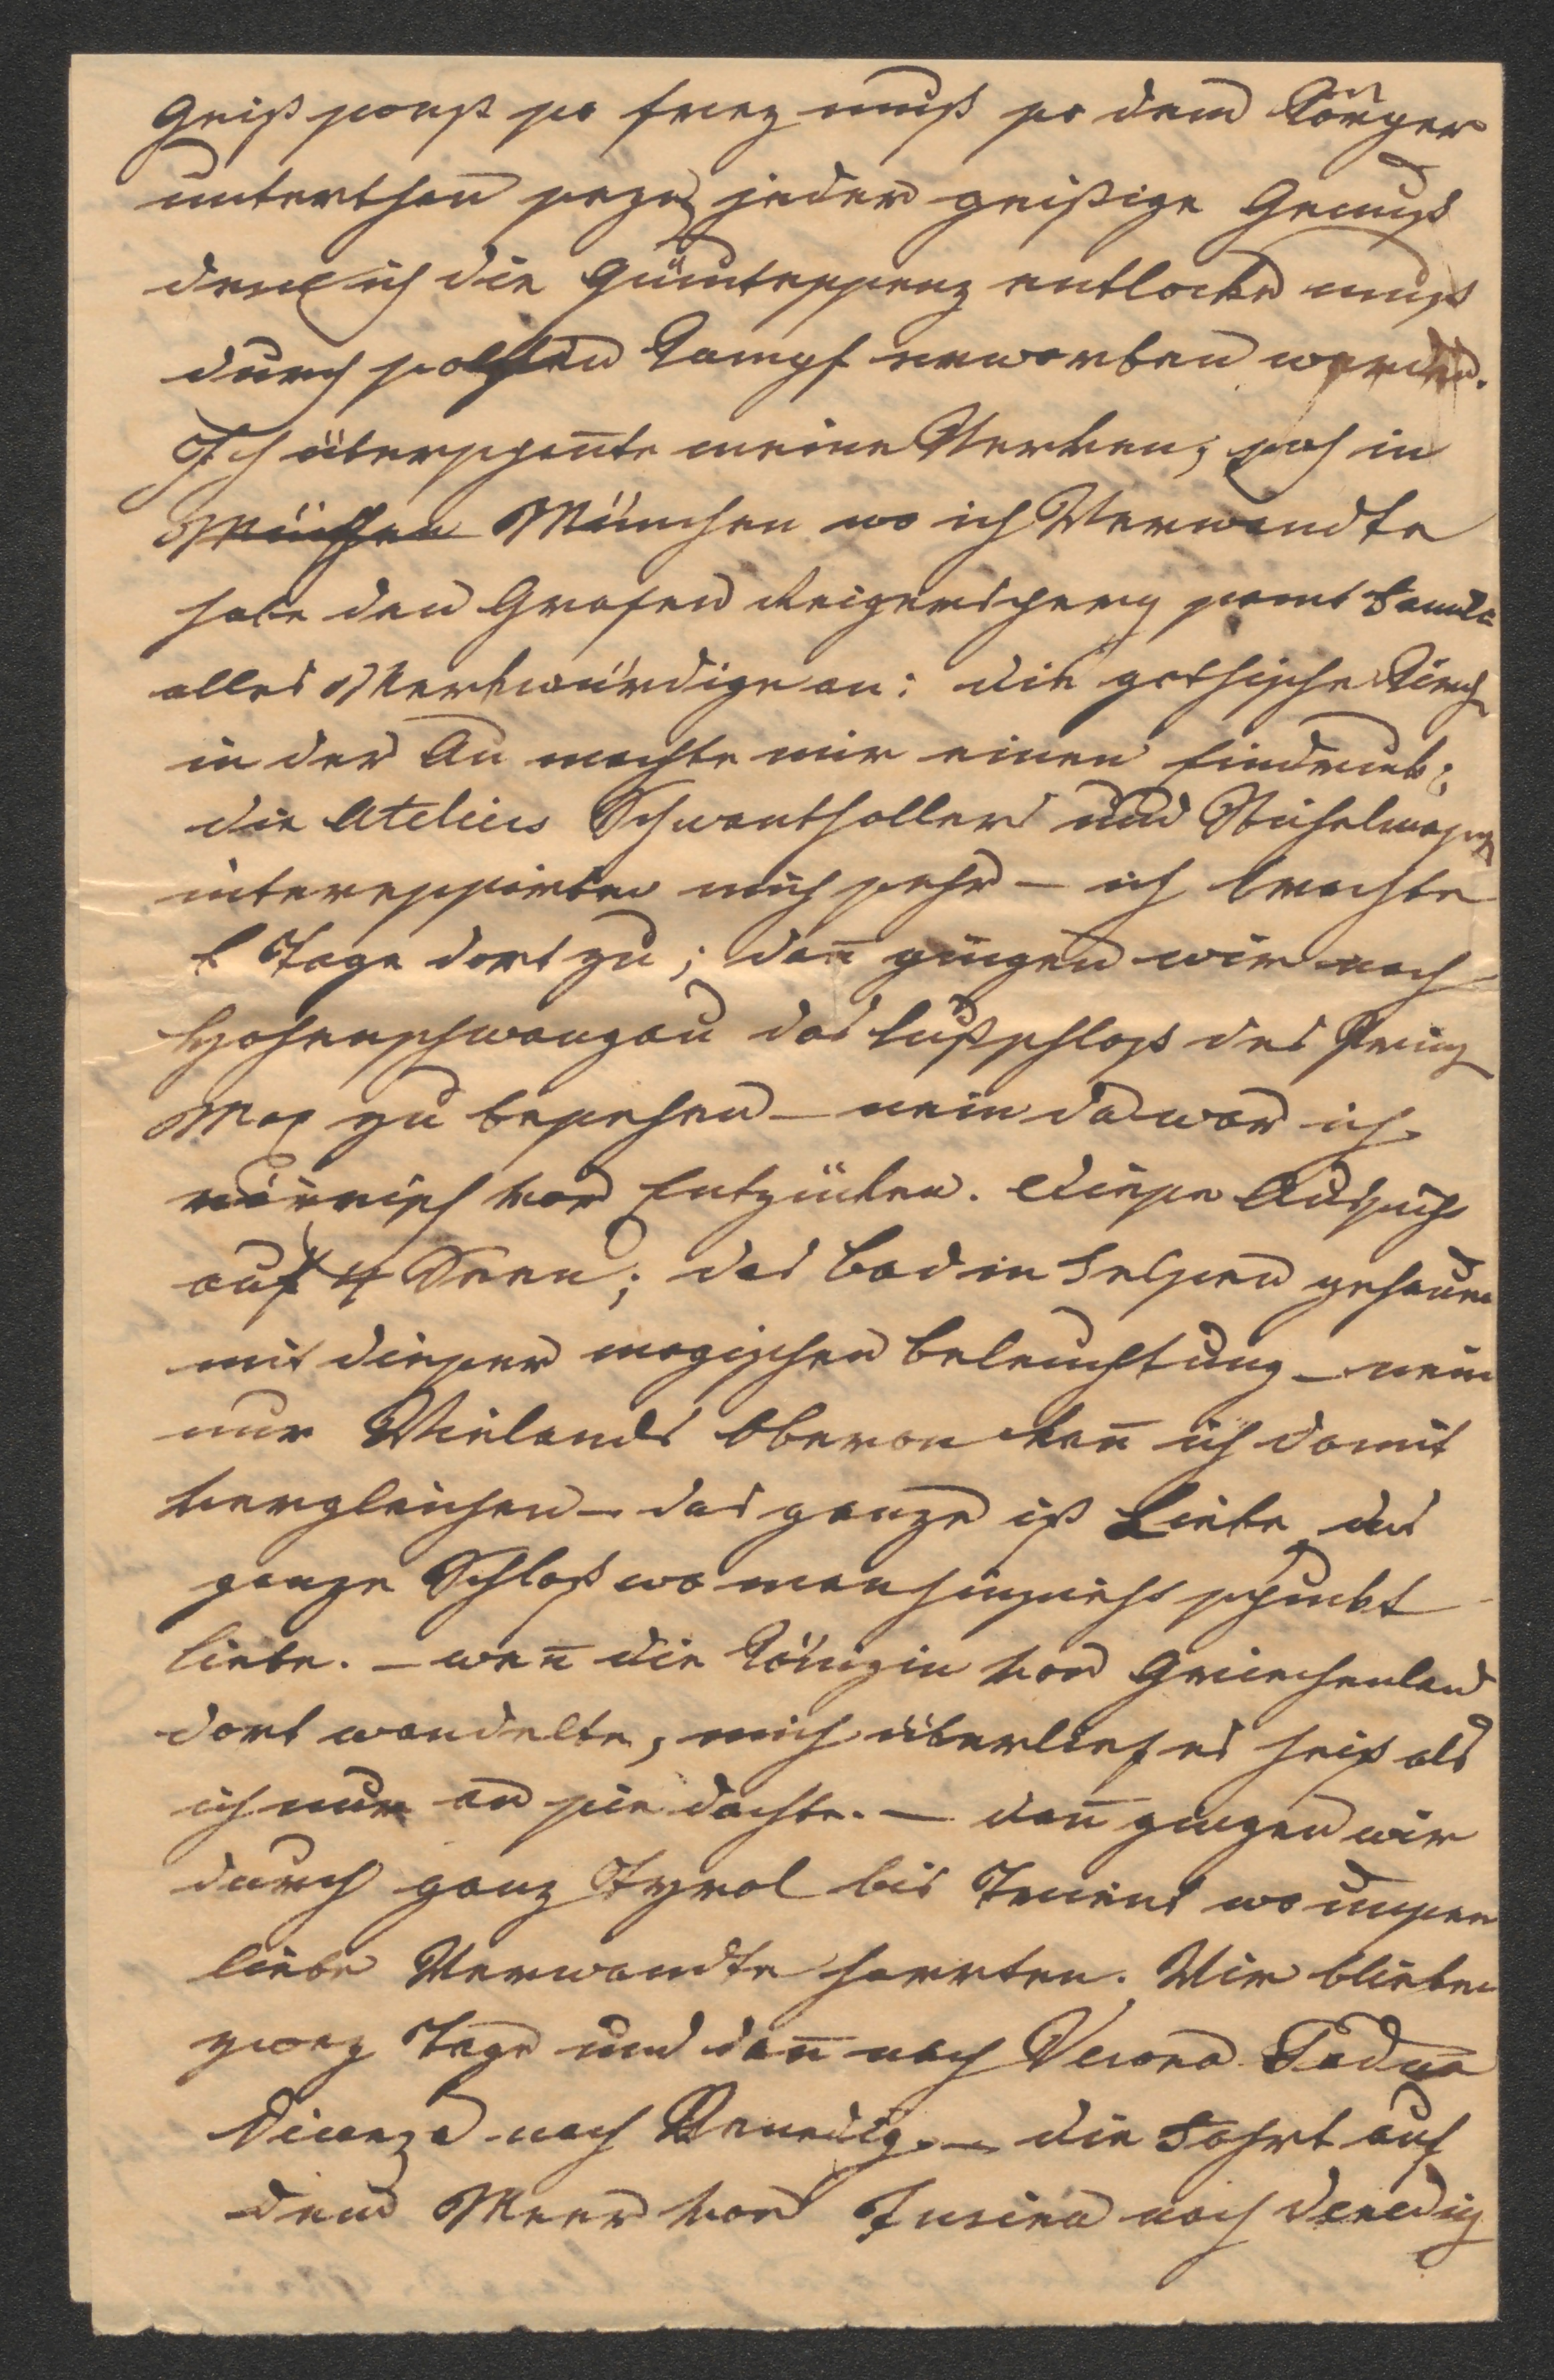 Geist sonst so frey muß so dem Körper
unterthan seyn, jeder geistige Genuß
den ich die Quintessenz entlocke muß
durch solchen Kampf erworben werden.
Ich überspannte meine Nerven; sah in
München München wo ich Verwandte
habe den Grafen Reigersperg samt Famil:
alles Merkwürdige an: die gothische Kirch
in der Au machte mir einen Eindruck;
die Ateliers Schwanthallers und Stiehlmayers
interessirten mich sehr – ich brachte
6 Tage dort zu; dan̄ gingen wir nach
Hohenschwangau das Lustschloß des Prinz
Max zu besehen – nein da war ich
närrisch vor Entzücken. Diese Aussicht
auf 4 Seen; das Bad in Felsen gehauen
mit dieser magischen Beleuchtung – nein
nur Wielands Oberon kan̄ ich damit
vergleichen – das ganze ist Liebe das
ganze Schloß wo man hinzieht schmückt
Liebe. – wen̄ die Königin von Griechenland
dort wandelte, mich überlief es heiß als
ich nur an sie dachte. – dan̄ gingen wir
durch ganz Tyrol bis Trient wo unsere
liebe Verwandte harrten. Wir blieben
zwey Tage und dan̄ nach Verona Padua
Vicenza nach Venedig. – die Fahrt auf
dem Meer von Fusina nach Venedig